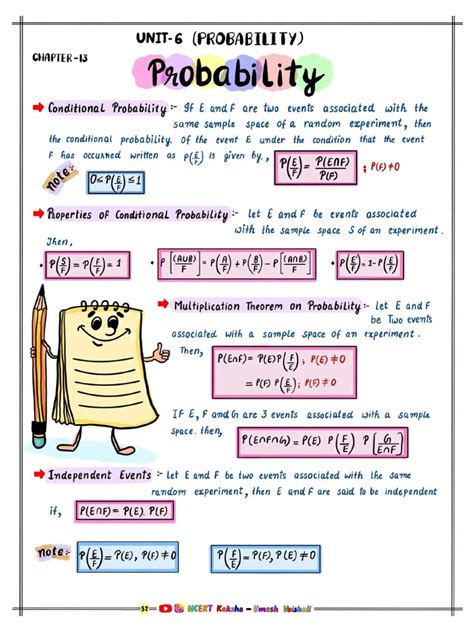 UNIT-6 (PROBABILITY)
CHAPTER-13
Probability
➡ Conditional Probability :- If E and F are two events associated with the
same sample space of a random experiment, then
the conditional probability. Of the event E under the condition that the event
F has occurred written as P(E/F) is given by., P(E/F) = P(E∩F)/P(F) ; P(F)≠0
note:- 0≤P(E/F)≤1
➡ Properties of Conditional Probability :- let E and F be events associated
with the sample space S of an experiment.
Then,
• P(S/F) = P(F/F) = 1 • P[(A∪B)/F] = P(A/F) + P(B/F) - P[(A∩B)/F] • P(E'/F) = 1-P(E/F)
➡ Multiplication Theorem on Probability :- let E and F
be Two events
associated with a sample space of an experiment.
Then, P(E∩F) = P(E) P(F/E) ; P(E) ≠0
= P(F) P(E/F) ; P(F) ≠0
If E, F and G are 3 events associated with a sample
space. then, P(E∩F∩G) = P(E) P(F/E) P[G/E∩F]
➡ Independent Events :- let E and F be two events associated with the same
random experiment, then E and F are said to be independent
if, P(E∩F) = P(E). P(F)
note:- P(E/F) = P(E), P(F) ≠0 P(F/E) = P(F), P(E) ≠0
52 NCERT Kaksha - Umesh Vaishali